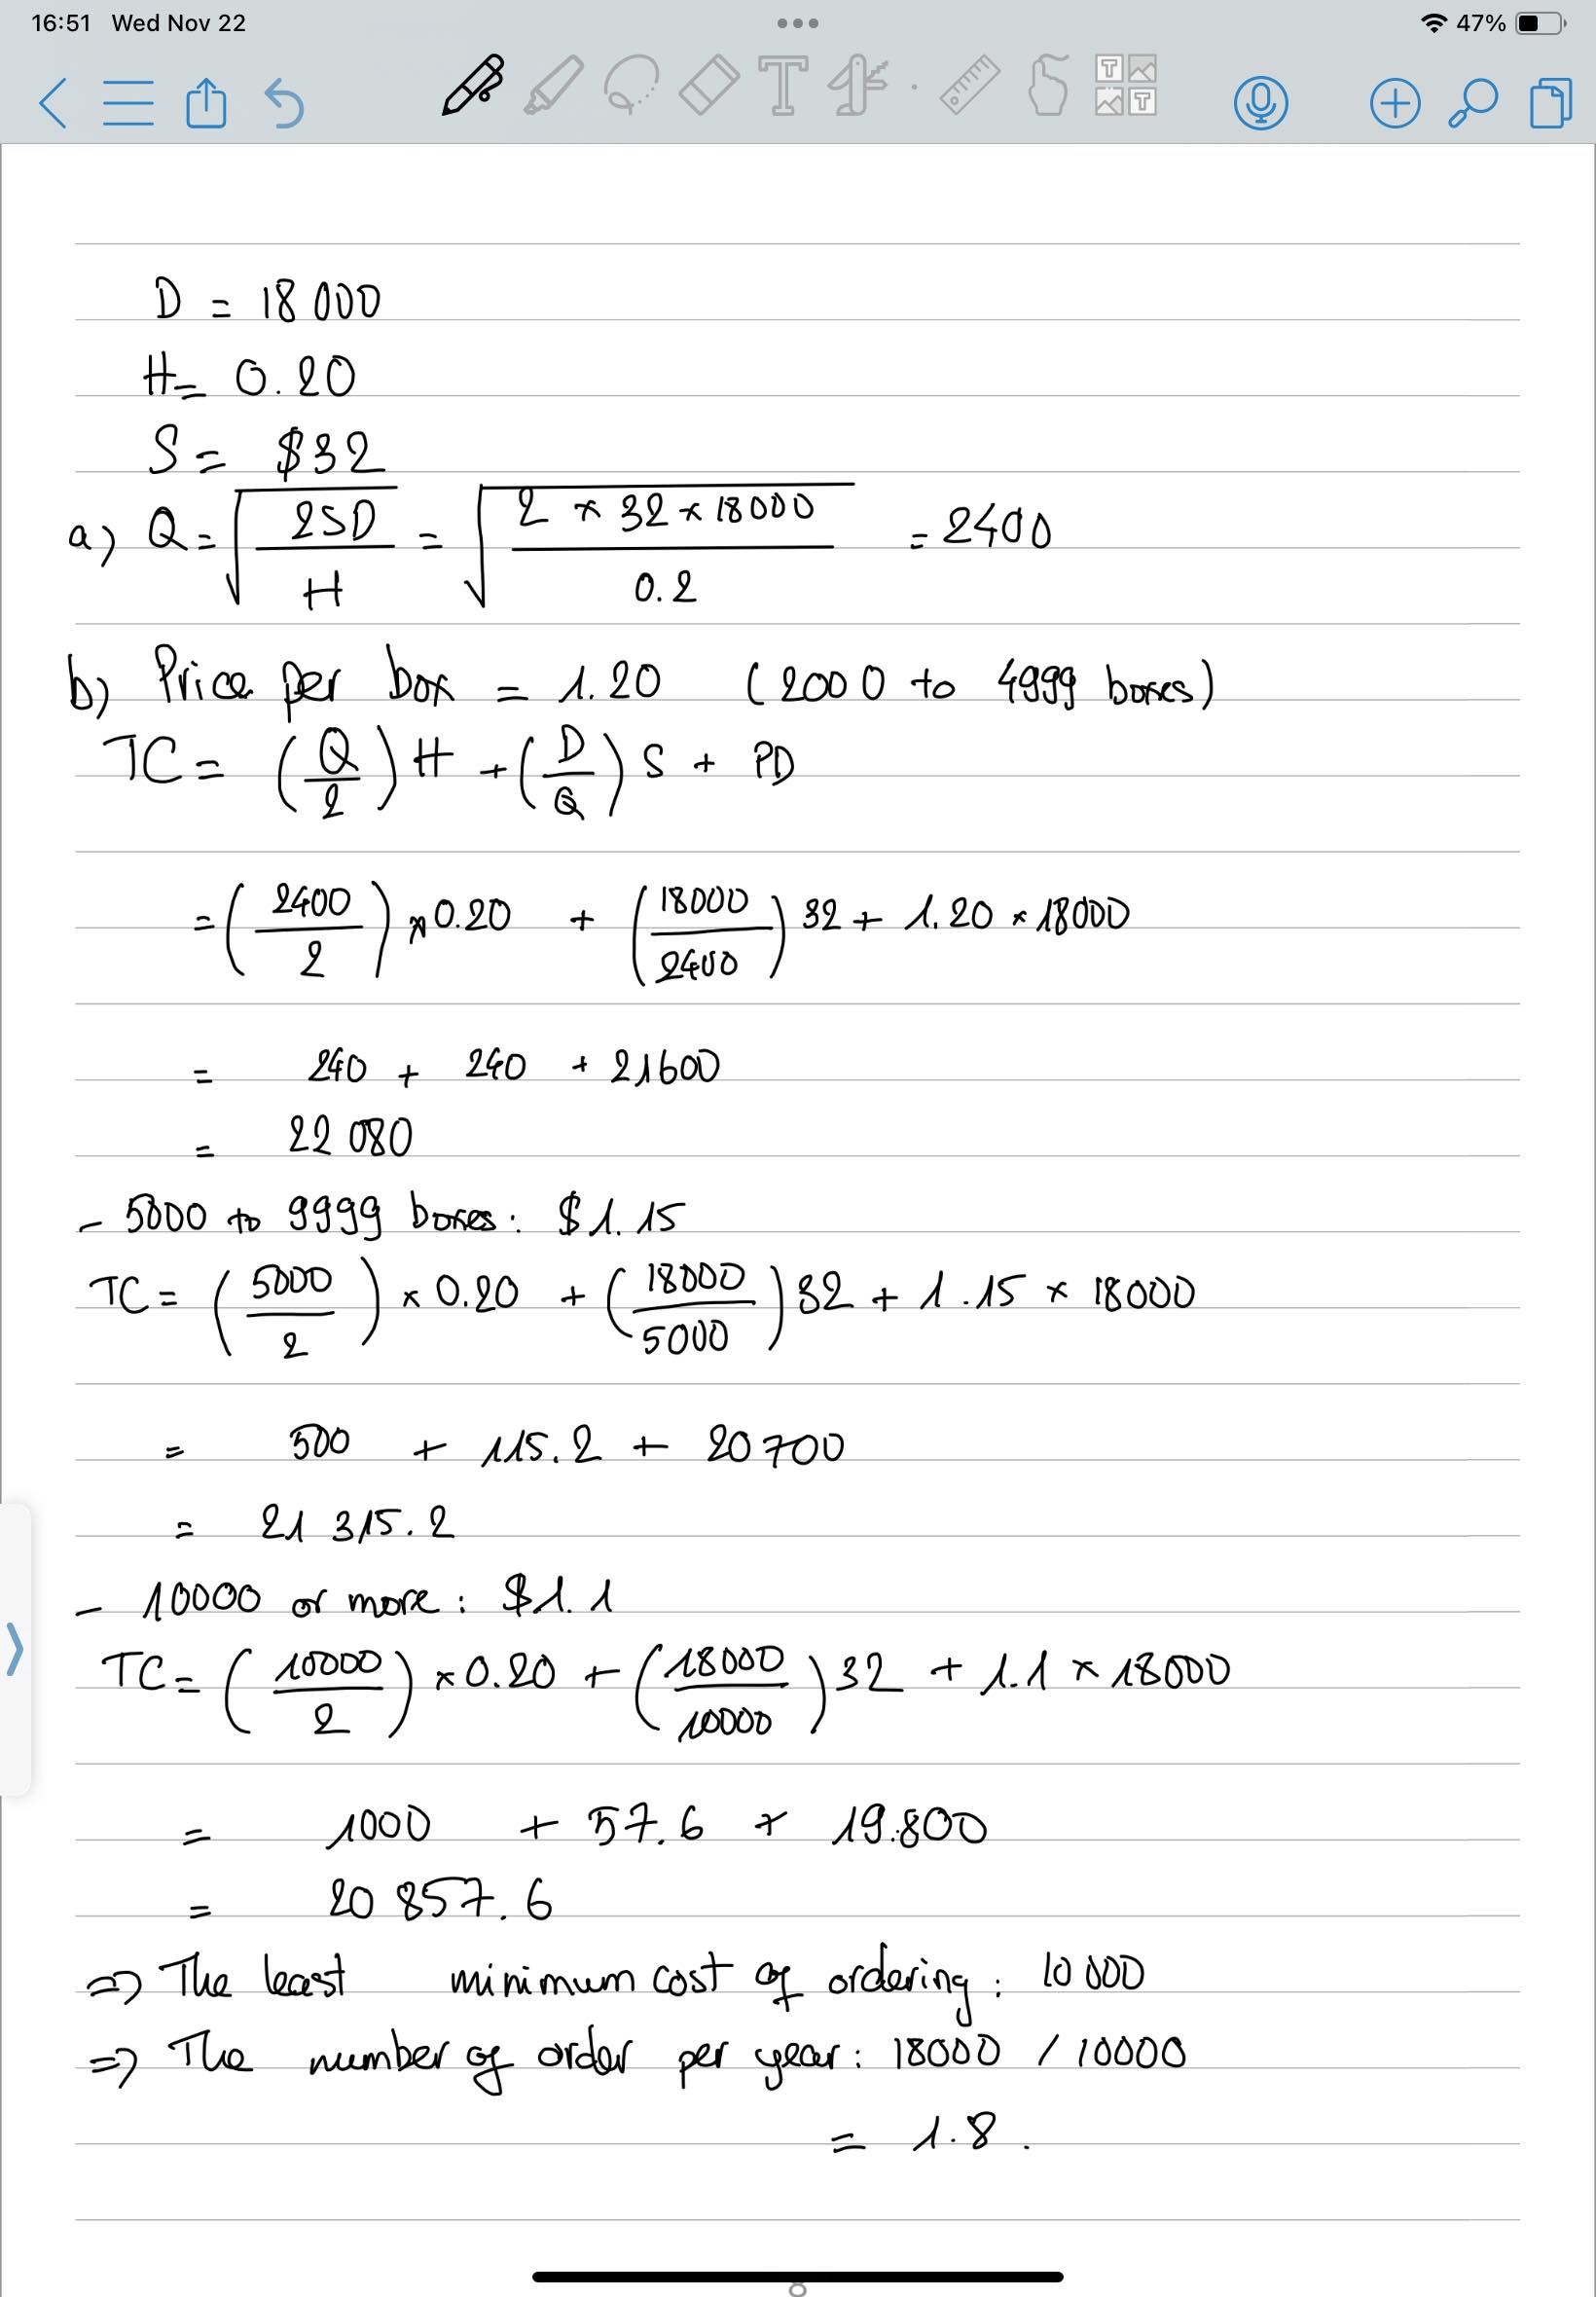 16:51 Wed Nov 22 47%
D = 18000
H = 0.20
S = $32
a) Q = √(2SD / H) = √(2 × 32 × 18000 / 0.2) = 2400
b) Price per box = 1.20 (2000 to 4999 boxes)
TC = (Q/2) H + (D/Q) S + PD
= (2400/2) × 0.20 + (18000/2400) 32 + 1.20 × 18000
= 240 + 240 + 21600
= 22 080
- 5000 to 9999 boxes: $1.15
TC = (5000/2) × 0.20 + (18000/5000) 32 + 1.15 × 18000
= 500 + 115.2 + 20700
= 21 315.2
- 10000 or more: $1.1
TC = (10000/2) × 0.20 + (18000/10000) 32 + 1.1 × 18000
= 1000 + 57.6 + 19.800
= 20 857.6
=> The least minimum cost of ordering: 10 000
=> The number of order per year: 18000 / 10000
= 1.8.